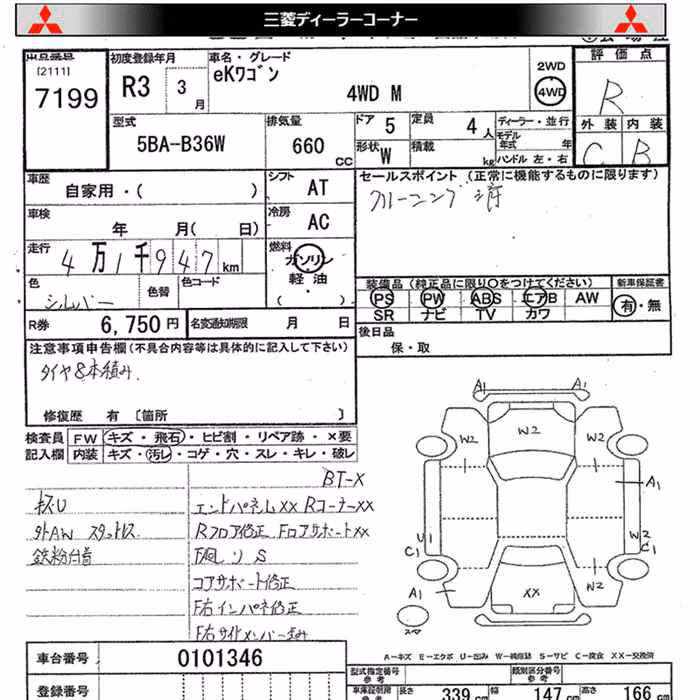 三菱ディーラーコーナー
出品番号
[2111]
7199
初度登録年月
R3 3月
車名・グレード
eKワゴン
4WD M
2WD
4WD
評価点
R
外装 内装
C B
型式
5BA-B36W
排気量
660 CC
ドア 5
定員 4人
形状 W
積載 kg
ディーラー・並行
モデル年式 年
ハンドル 左・右
車歴
自家用・( )
シフト AT
車検
年 月( 日)
冷房 AC
走行
4万1千947km
燃料
ガソリン
軽・油
( )
色
シルバー
色替
色コード
R券 6,750円
名変通知期限 月 日
セールスポイント (正常に機能するものに限ります)
クリーニング済
装備品 (純正品に限り〇をつけてください)
新車保証書
PS PW ABS エアB AW
有・無
SR ナビ TV カワ
後日品
保・取
注意事項申告欄(不具合内容等は具体的に記入して下さい)
タイヤ8本積み.
修復歴 有 〔箇所 〕
検査員記入欄
FW キズ・飛石・ヒビ割・リペア跡・×要
内装 キズ・汚レ・コゲ・穴・スレ・キレ・破レ
BT-X
キズU
外AW スタットレス
鉄粉付着
エンドパネルXX RコーナーXX
Rフロア修正 FロアサポートXX
F廻りS
コアサポート修正
F右インパネ修正
F右サイドメンバー歪み
A1 A1
W2 W2 W2
A1
U1 W2
C1 C1
W2
A1 XX
スマ
A-キズ E-エクボ U-凹み W-補修跡 S-サビ C-腐食 XX-交換済
車台番号 0101346
登録番号
型式指定番号 参考
類別区分番号 参考
車庫証明用 参考
長さ 339 cm 幅 147 cm 高さ 166 cm